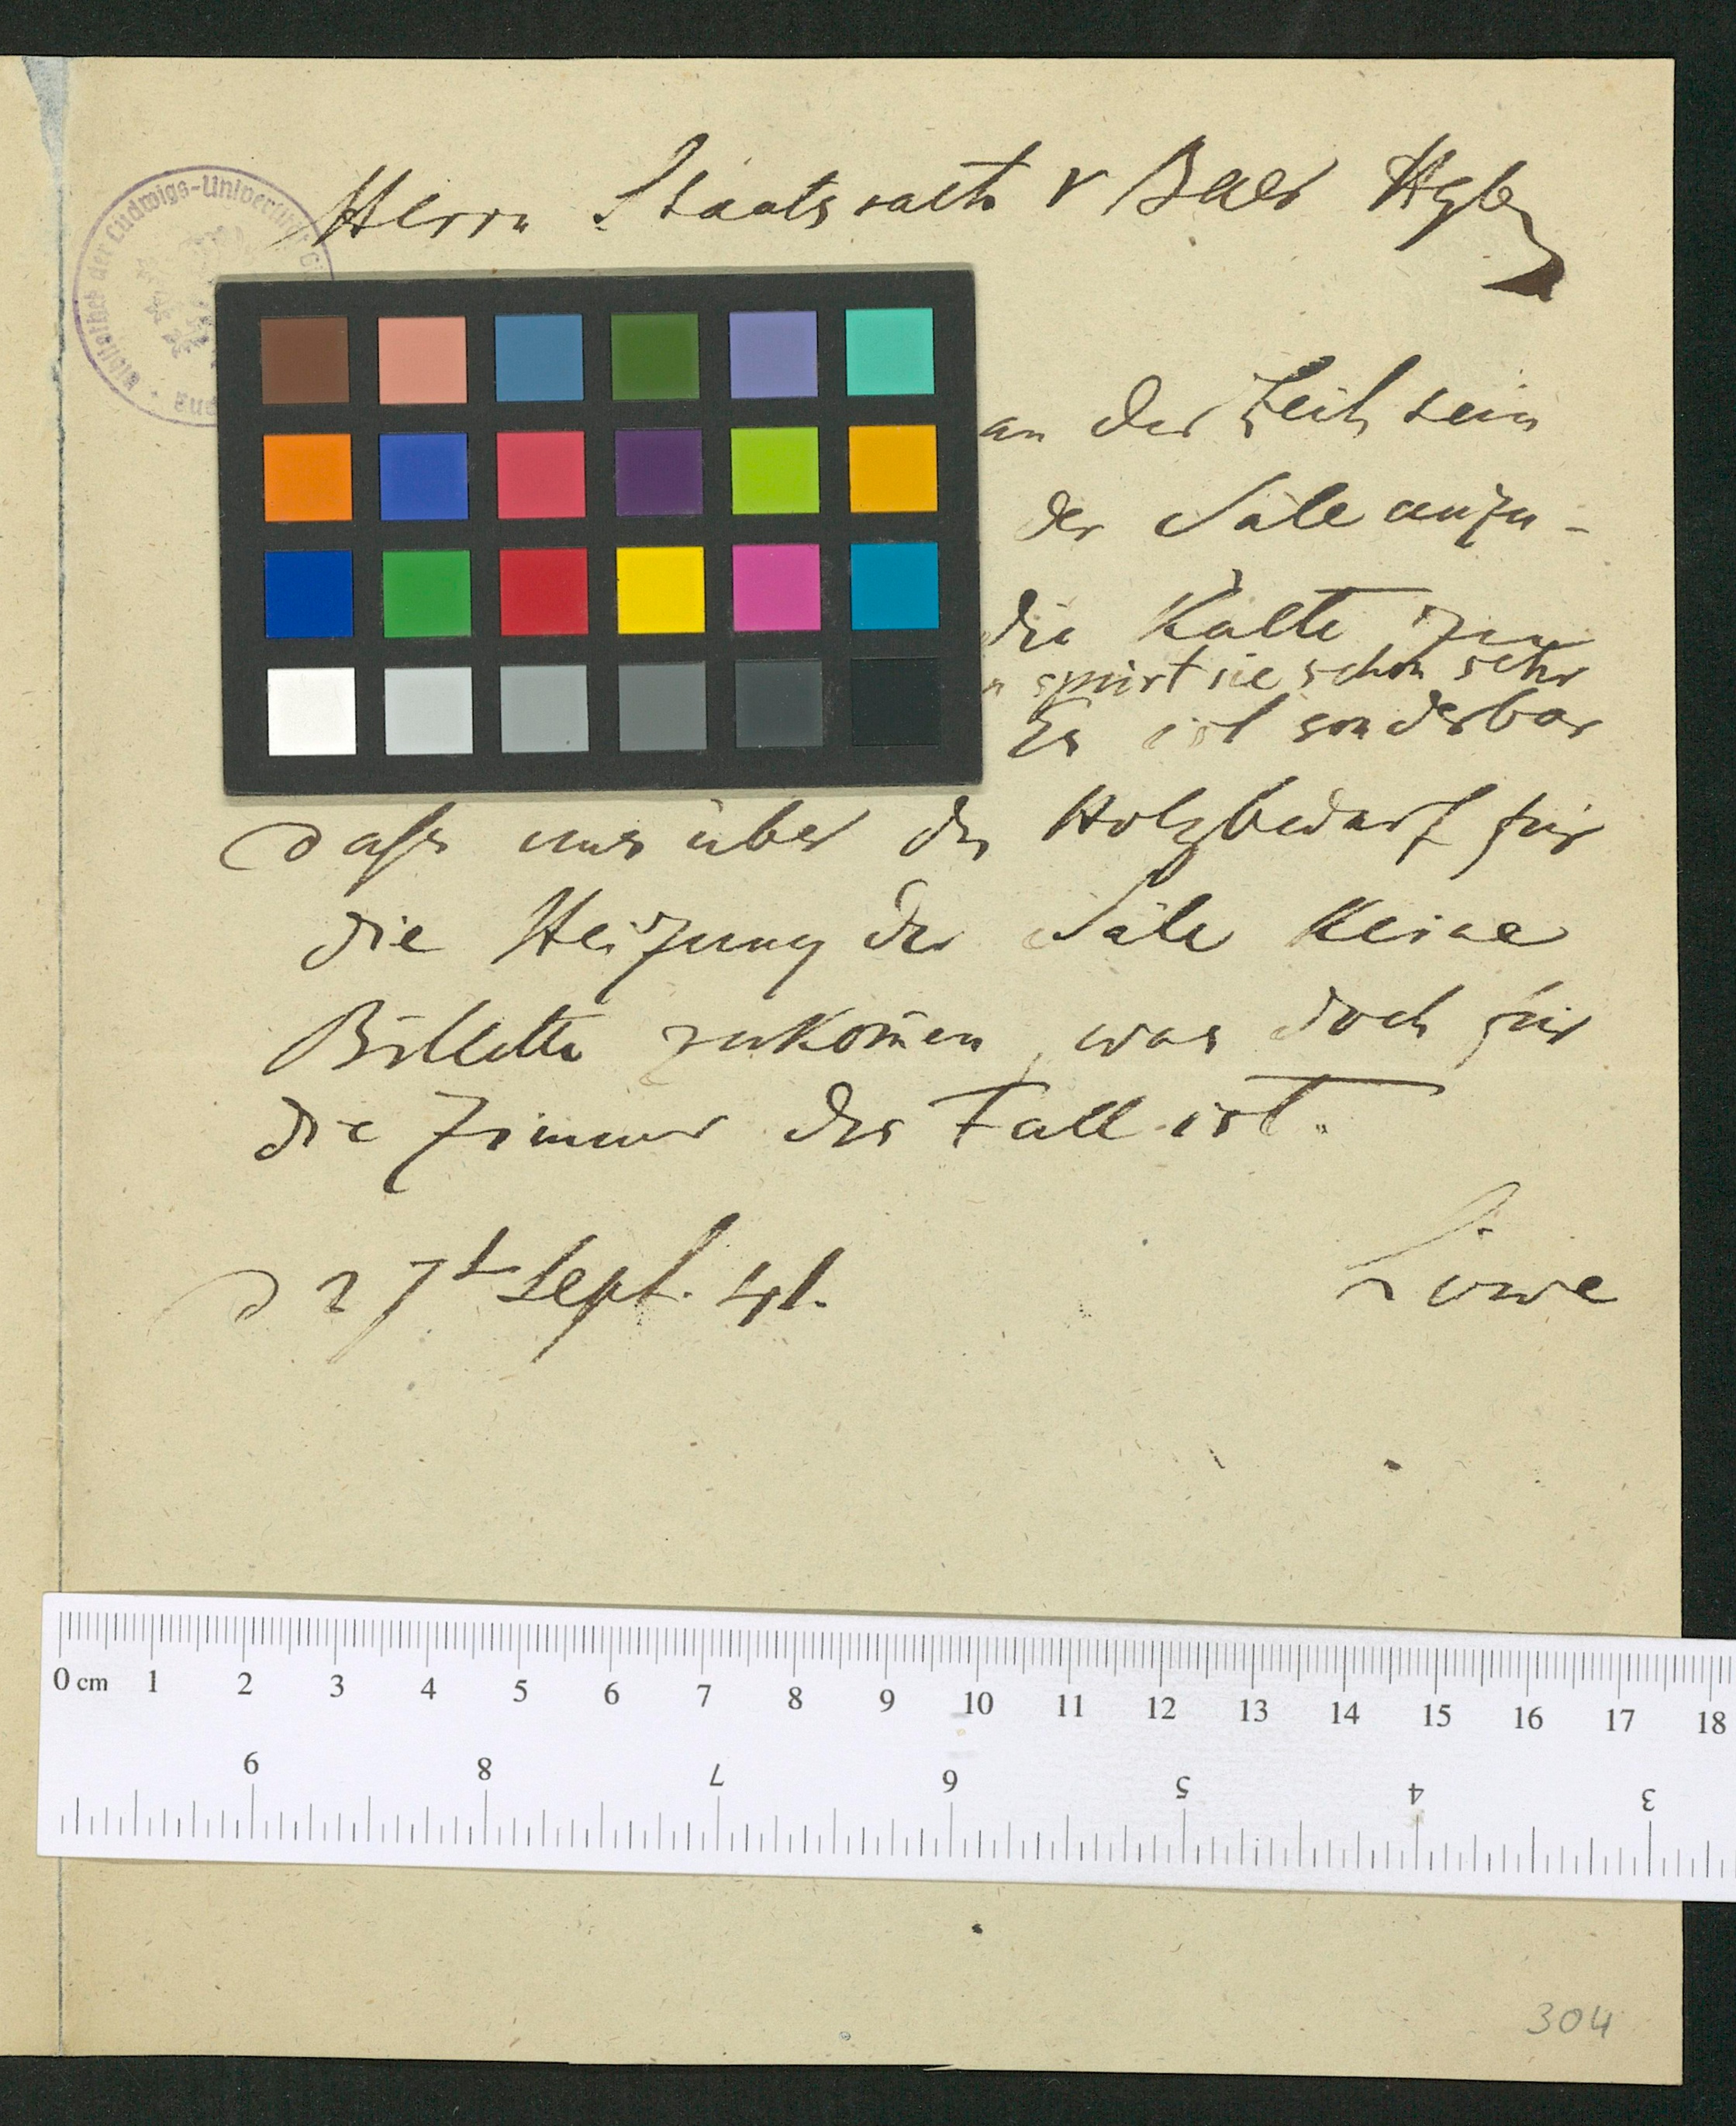 Herrn Staatsrath v Baer Hgb
an der Zeit sein
der Säle anzu-
die Kälte zu
spürt sie schon sehr
Es ist sonderbar
daß uns über den Holzbedarf für
die Heizung der Säle keine
Billette zukom̄en, was doch für
die Zimmer der Fall ist.
d 27t Sept. 41.
Löwe
Bibliothek der Ludwigs-Universität
0 cm 1 2 3 4 5 6 7 8 9 10 11 12 13 14 15 16 17 18
9 8 7 6 5 4 3
304